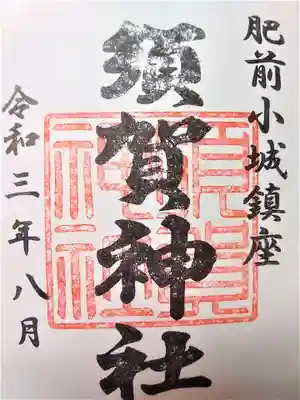 肥前小城鎮座
須賀神社
令和三年八月
須賀
神社